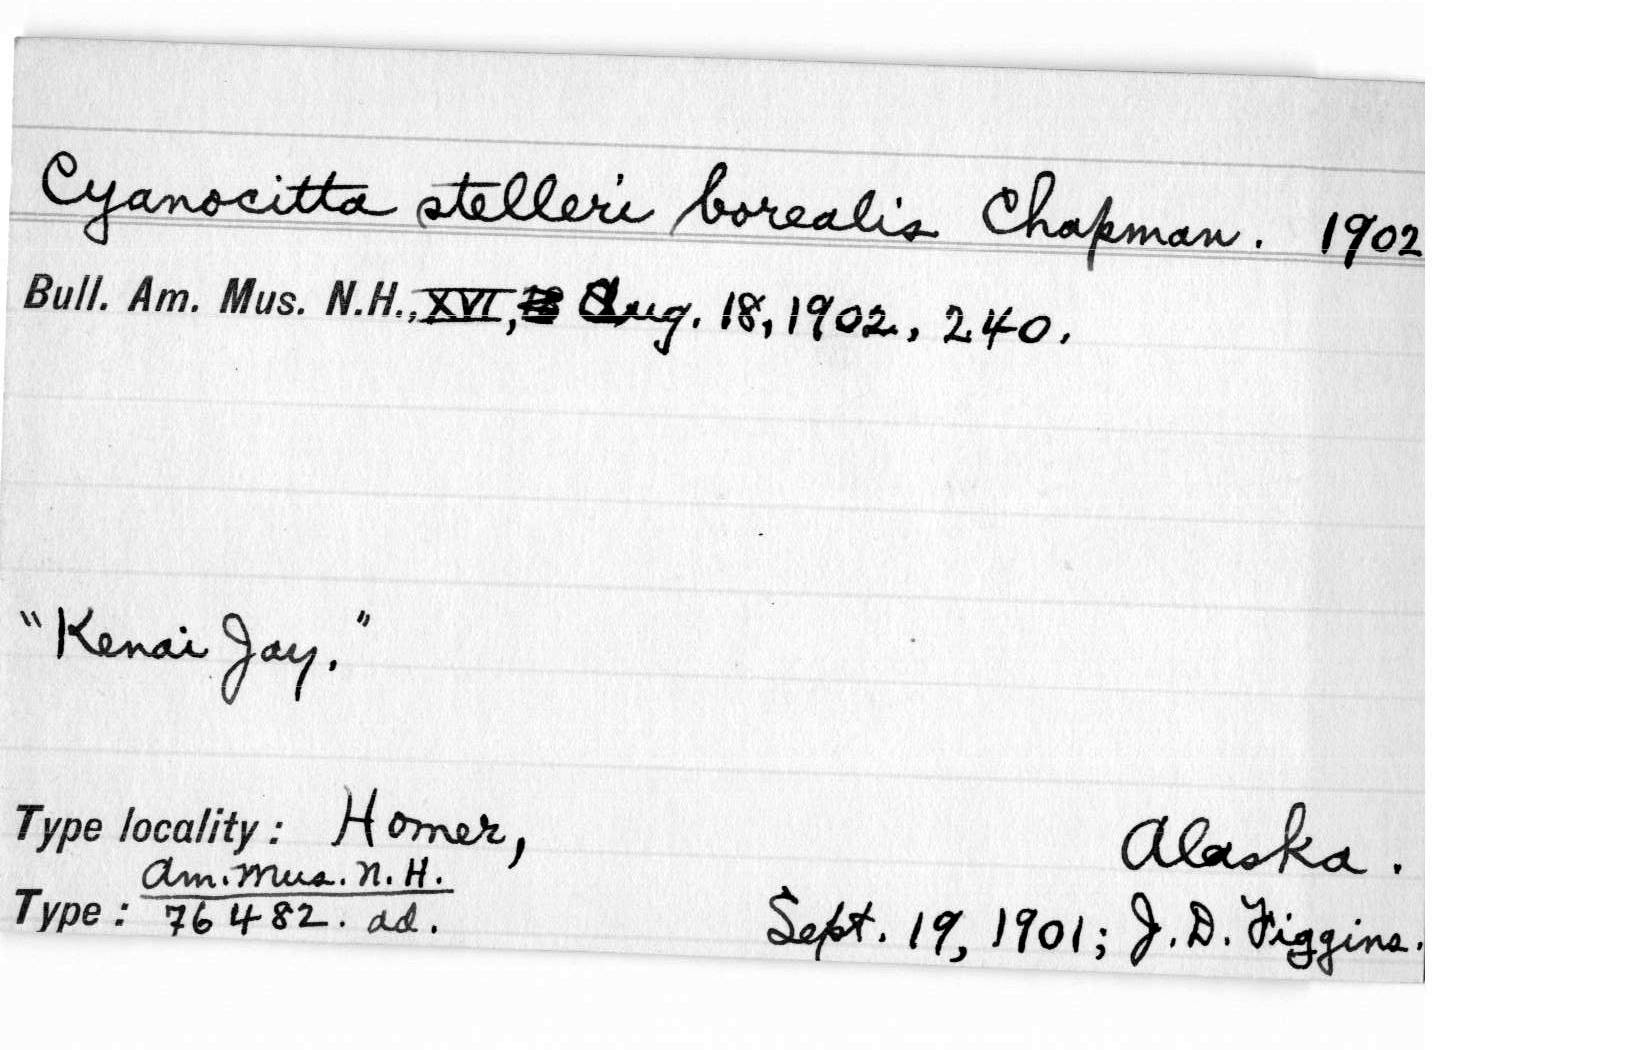 Cyanocitta stelleri borealis Chapman. 1902
Bull. Am. Mus. N.H., XVI, Aug. 18, 1902, 240.
"Kenai Jay."
Type locality: Homer, Alaska.
Am. Mus. N. H.
Type: 76482. ad. Sept. 19, 1901; J. D. Figgins.